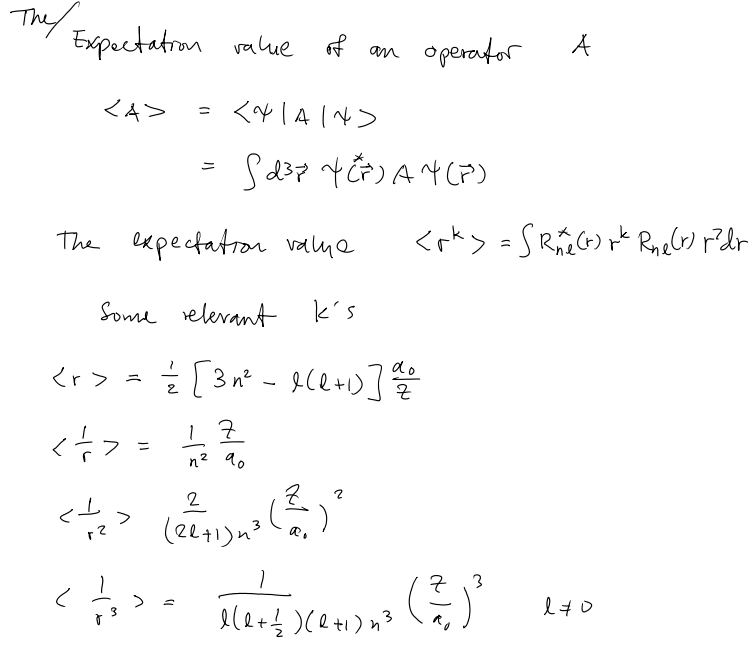 The/
Expectation value of an operator A
<A> = <ψ|A|ψ>
= ∫ d³r⃗ ψ*(r⃗) A ψ(r⃗)
The expectation value <r^k> = ∫ R*_{nl}(r) r^k R_{nl}(r) r² dr
Some relevant k's
<r> = 1/2 [3n² - l(l+1)] a₀/Z
<1/r> = 1/n² Z/a₀
<1/r²> 2/((2l+1)n³) (Z/a₀)²
<1/r³> = 1/(l(l+1/2)(l+1)n³) (Z/a₀)³ l ≠ 0